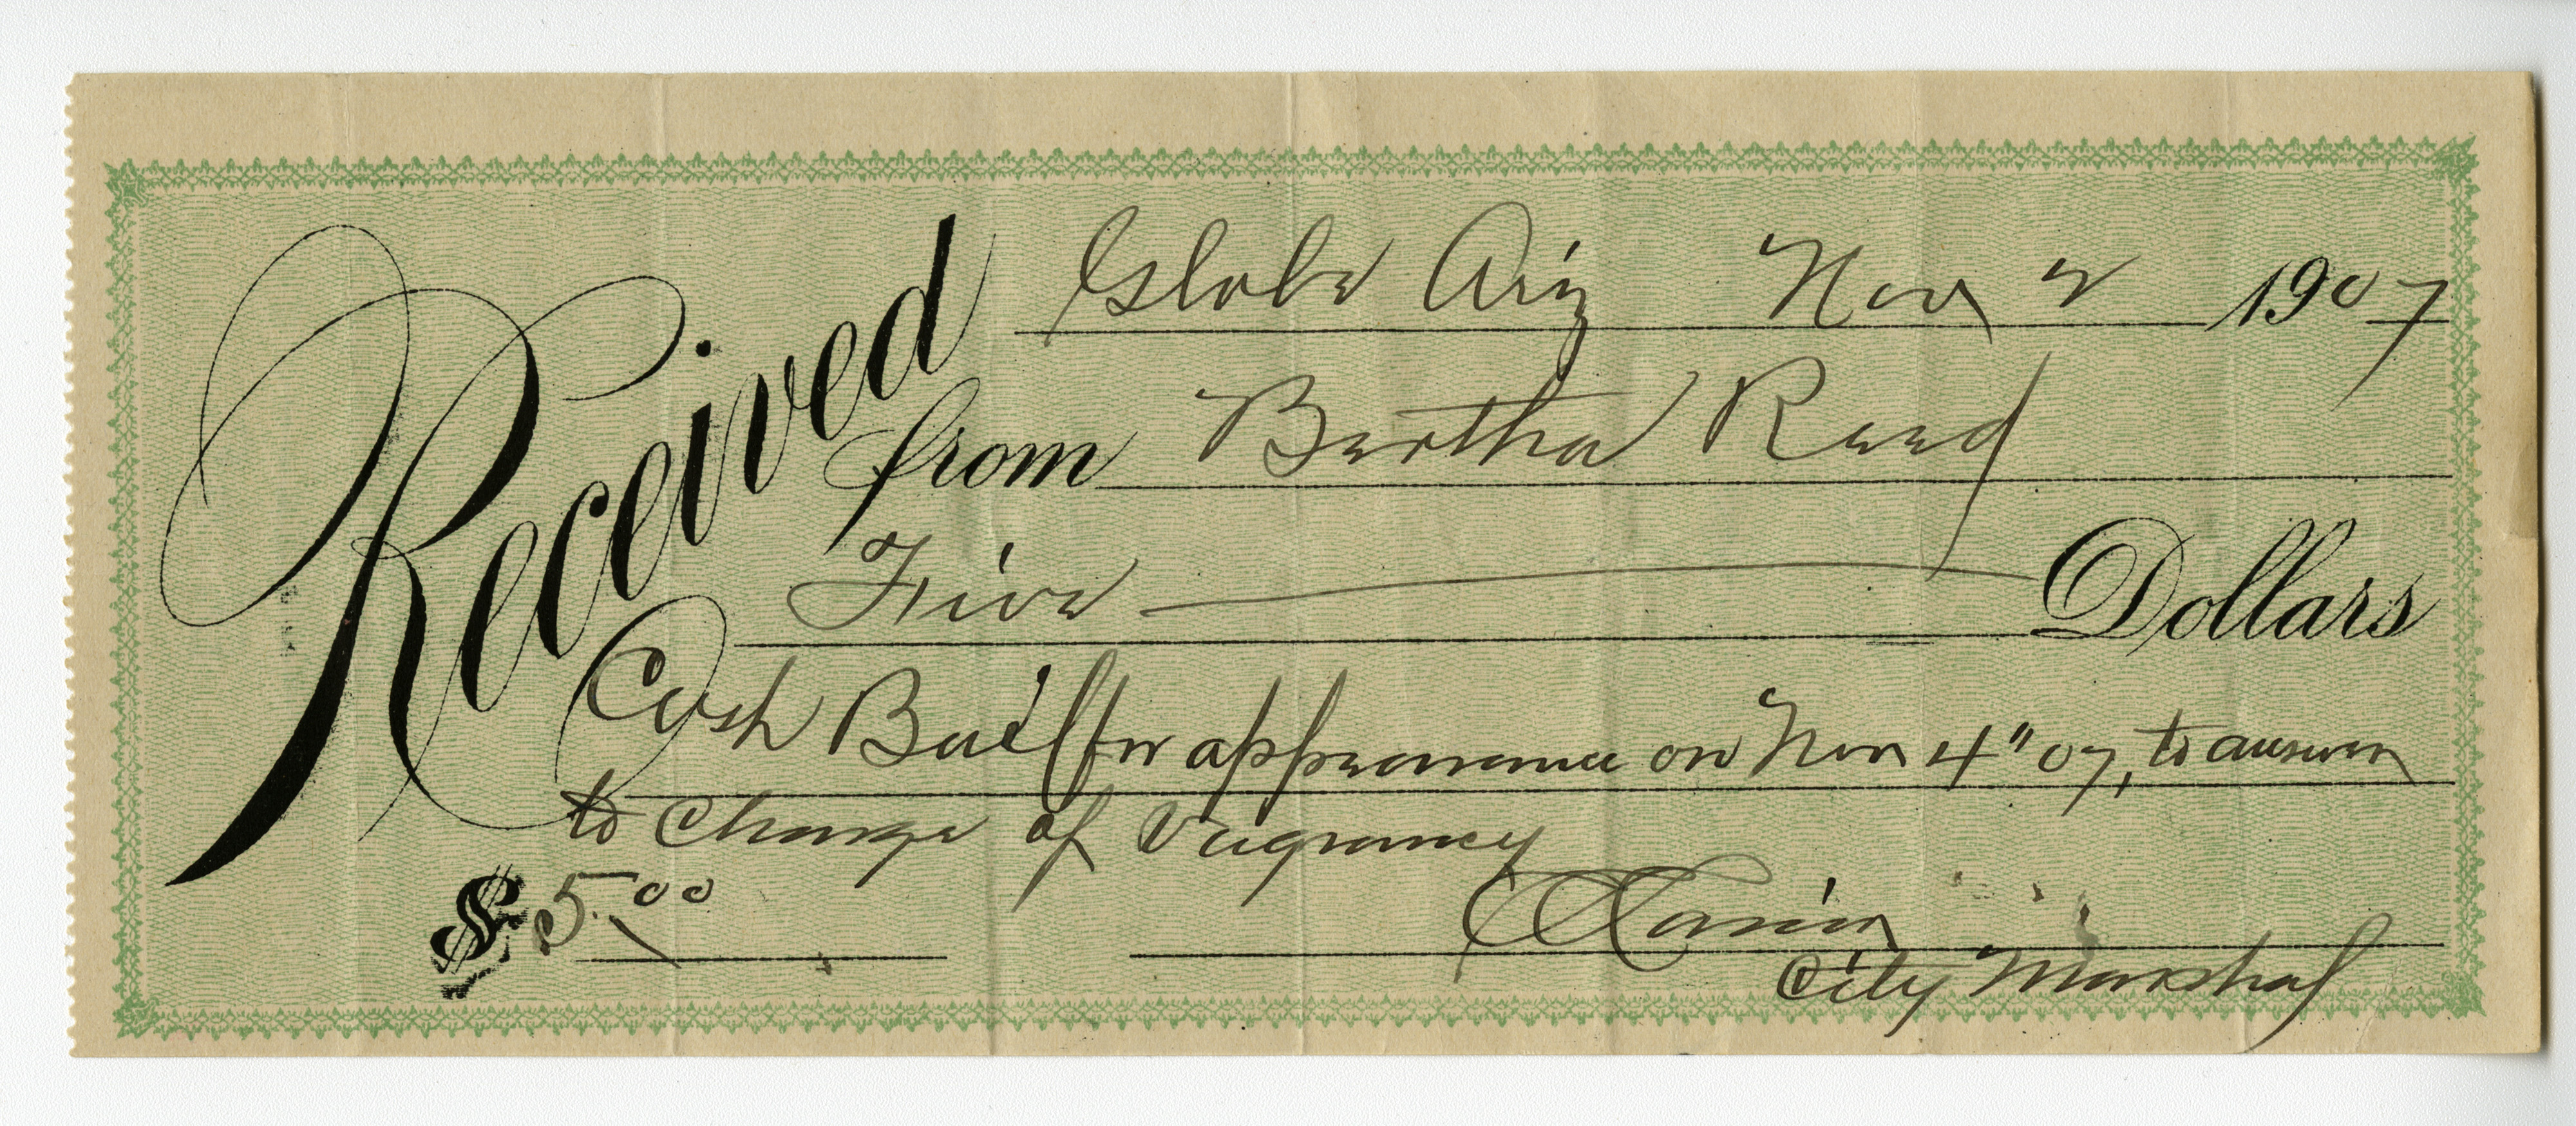 Globe Ariz Nov 2 1907
Received from Bertha Reed
Five Dollars
Cash Bail for appearance on Nov 4" 07, to answer
to Charge of Vagrancy
$5.00
City Marshal